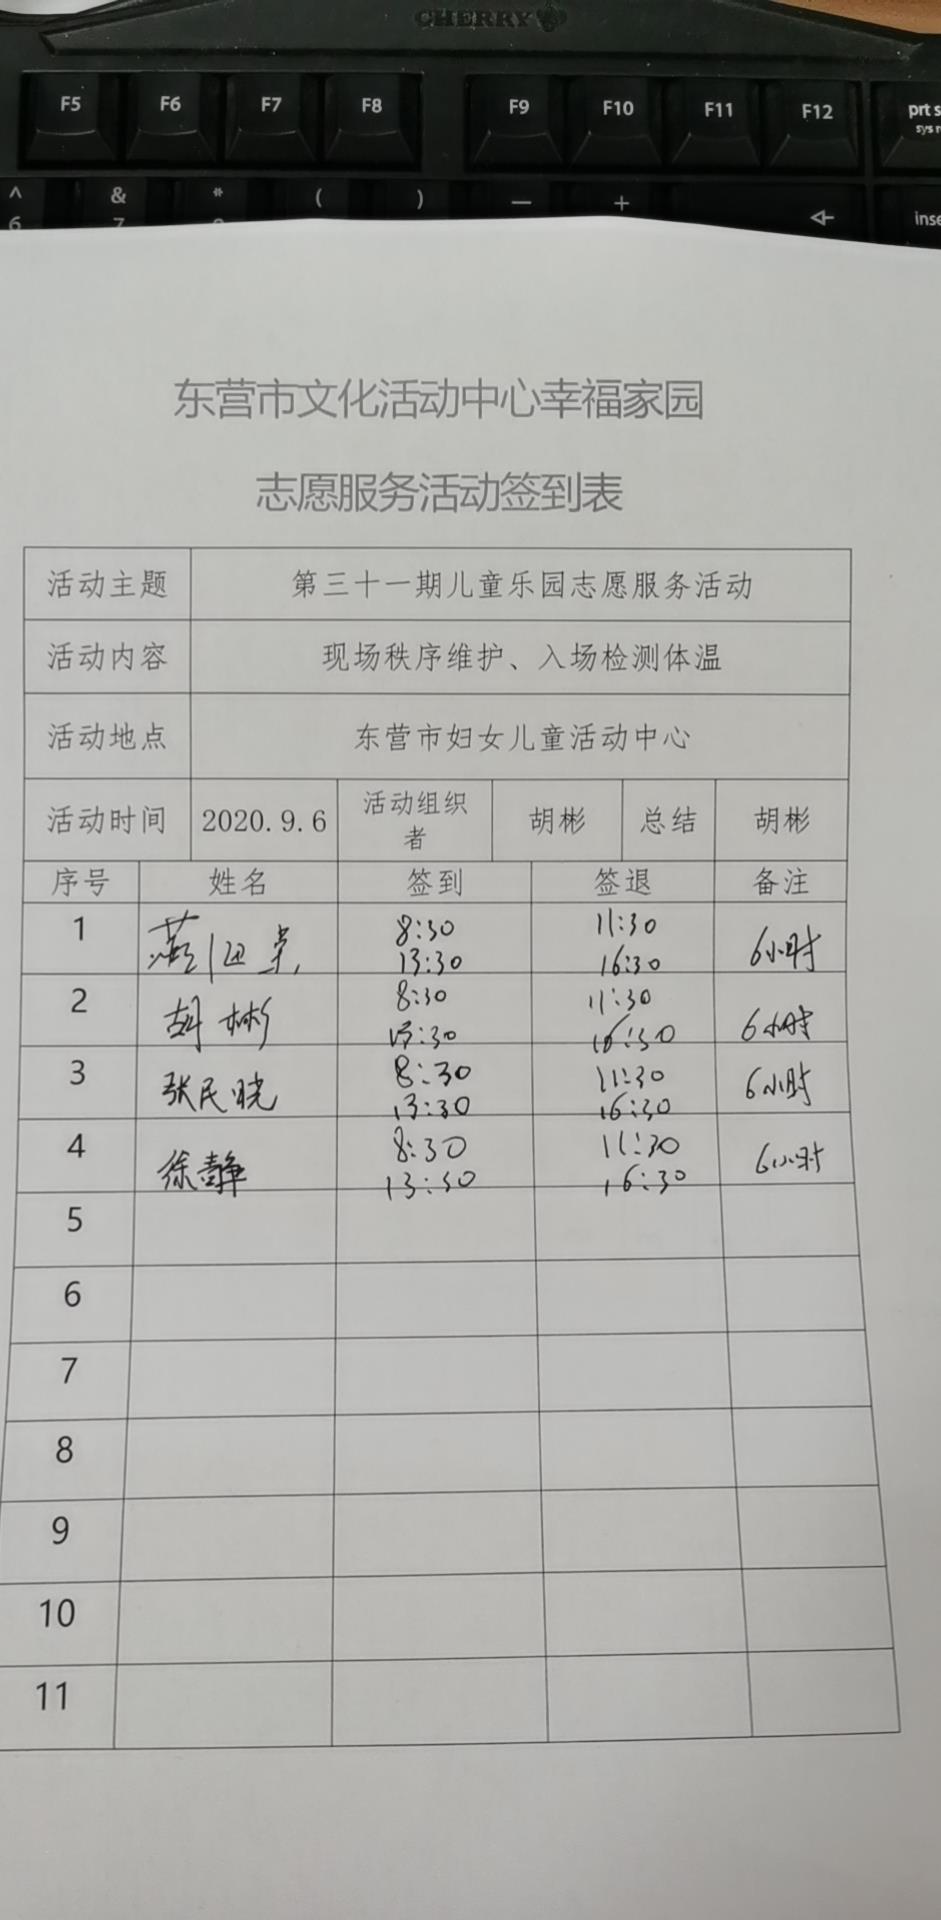 CHERRY
F5 F6 F7 F8 F9 F10 F11 F12 prt s
sys r
^ & * ( ) — +
6 7 inse
东营市文化活动中心幸福家园
志愿服务活动签到表
活动主题 第三十一期儿童乐园志愿服务活动
活动内容 现场秩序维护、入场检测体温
活动地点 东营市妇女儿童活动中心
活动时间 2020.9.6 活动组织 胡彬 总结 胡彬
者
序号 姓名 签到 签退 备注
1 8:30 11:30 6小时
13:30 16:30
2 胡彬 8:30 11:30 6小时
13:30 16:30
3 张民晓 8:30 11:30 6小时
13:30 16:30
4 徐静 8:30 11:30 6小时
13:30 16:30
5
6
7
8
9
10
11